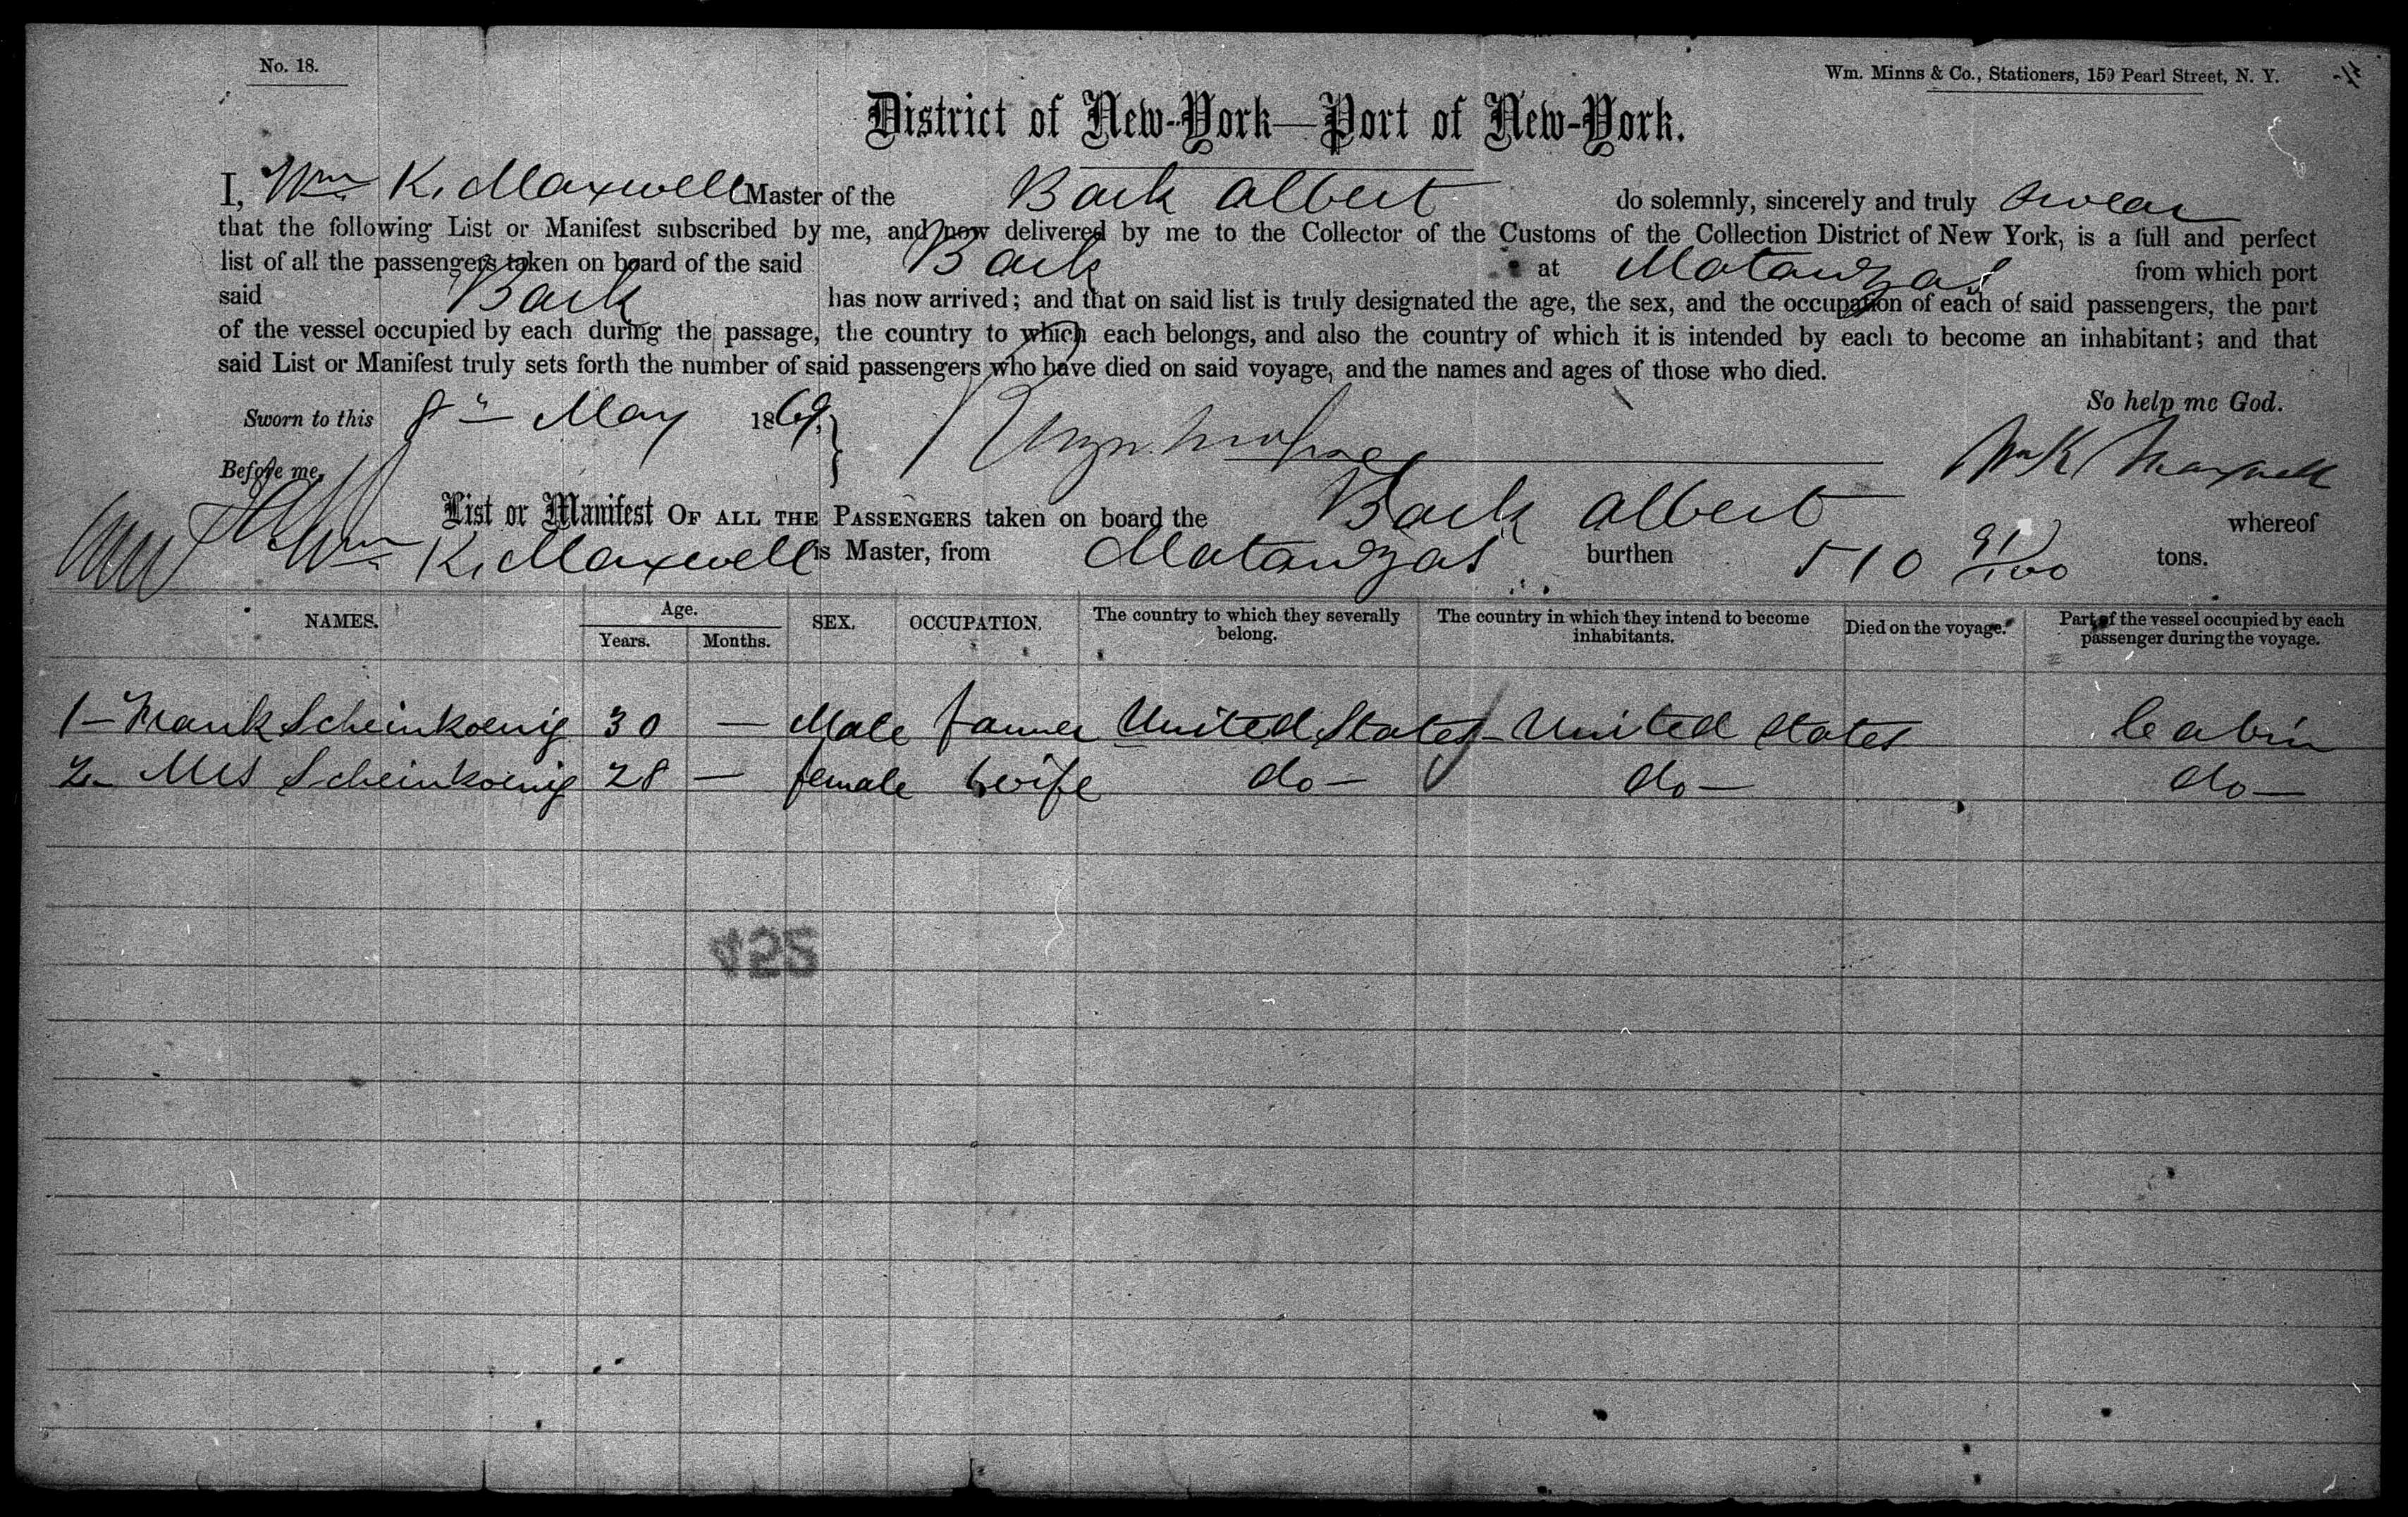 No. 18.
Wm. Minns & Co., Stationers, 159 Pearl Street, N. Y.
District of New-York—Port of New-York.
I, Wm. K. Maxwell Master of the Bark Albert do solemnly, sincerely and truly swear
that the following List or Manifest subscribed by me, and now delivered by me to the Collector of the Customs of the Collection District of New York, is a full and perfect
list of all the passengers taken on board of the said Bark at Matanzas from which port
said Bark has now arrived; and that on said list is truly designated the age, the sex, and the occupation of each of said passengers, the part
of the vessel occupied by each during the passage, the country to which each belongs, and also the country of which it is intended by each to become an inhabitant; and that
said List or Manifest truly sets forth the number of said passengers who have died on said voyage, and the names and ages of those who died.
So help me God.
Sworn to this 8" May 1869,
Wm K Maxwell
Before me,
List or Manifest OF ALL THE PASSENGERS taken on board the Bark Albert whereof
Wm. K. Maxwell is Master, from Matanzas burthen 510 91/100 tons.
NAMES. Age. Years. Months. SEX. OCCUPATION. The country to which they severally belong. The country in which they intend to become inhabitants. Died on the voyage. Part of the vessel occupied by each passenger during the voyage.
1 – Frank Scheinkoenig 30 — Male farmer United States – United States Cabin
2 – Mrs Scheinkoenig 28 — female wife do — do — do —
254